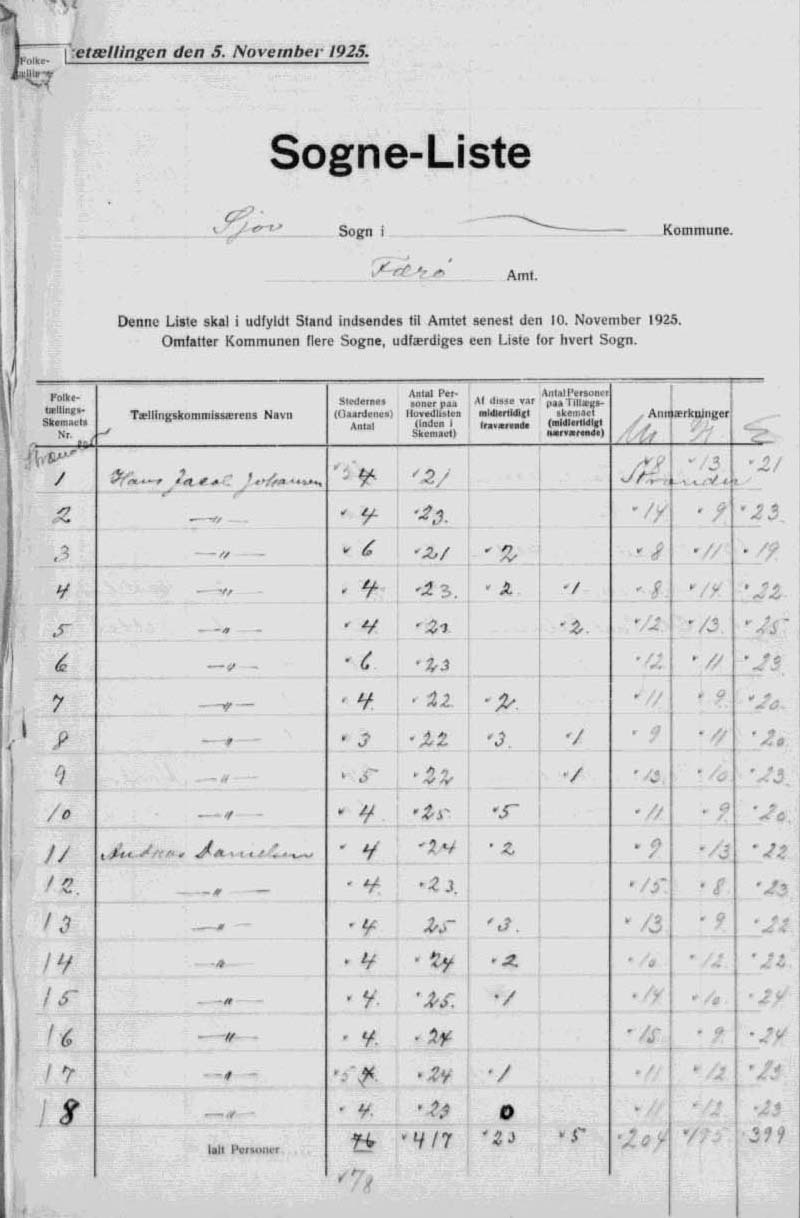 Folke-
etællingen den 5. November 1925.
Sogne-Liste
Sjov Sogn i Kommune.
Færö Amt.
Denne Liste skal i udfyldt Stand indsendes til Amtet senest den 10. November 1925.
Omfatter Kommunen flere Sogne, udfærdiges een Liste for hvert Sogn.
Folke-tællings-Skemaets Nr. Tællingskommissærens Navn Stedernes (Gaardenes) Antal Antal Personer paa Hovedlisten (inden i Skemaet) Af disse var midlertidigt fraværende Antal Personer paa Tillægs-skemaet (midlertidigt nærværende) Anmærkninger
M K E
1 Hans Jacob Johansen 5 4 21 Strander 8 13 21
2 —"— 4 23. 14 9 23
3 —"— 6 21 2 8 11 19
4 —"— 4 23. 2 1 8 14 22
5 —"— 4 23 2 12 13 25
6 —"— 6 23 12 11 23
7 —"— 4 22 2 11 9 20
8 —"— 3 22 3 1 9 11 20
9 —"— 5 22 1 13 10 23
10 —"— 4 25 5 11 9 20
11 Andreas Danielsen 4 24 2 9 13 22
12. —"— 4 23. 15 8 23
13 —"— 4 25 3. 13 9 22
14 —"— 4 24 2 10 12 22
15 —"— 4. 25. 1 14 10 24
16 —"— 4. 24 15 9 24
17 —"— 5 4 24 1 11 12 23
18 —"— 4. 23 0 11 12 23
Ialt Personer 76 417 23 5 204 195 399
78